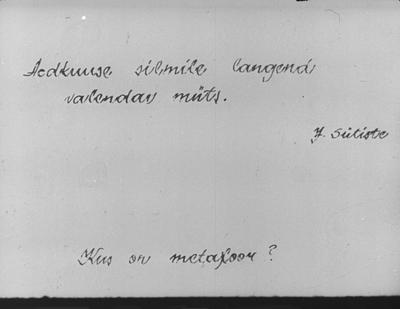 Aedkuuse silmile langend
valendav müts.
J. Sütiste
Kus on metafoor?